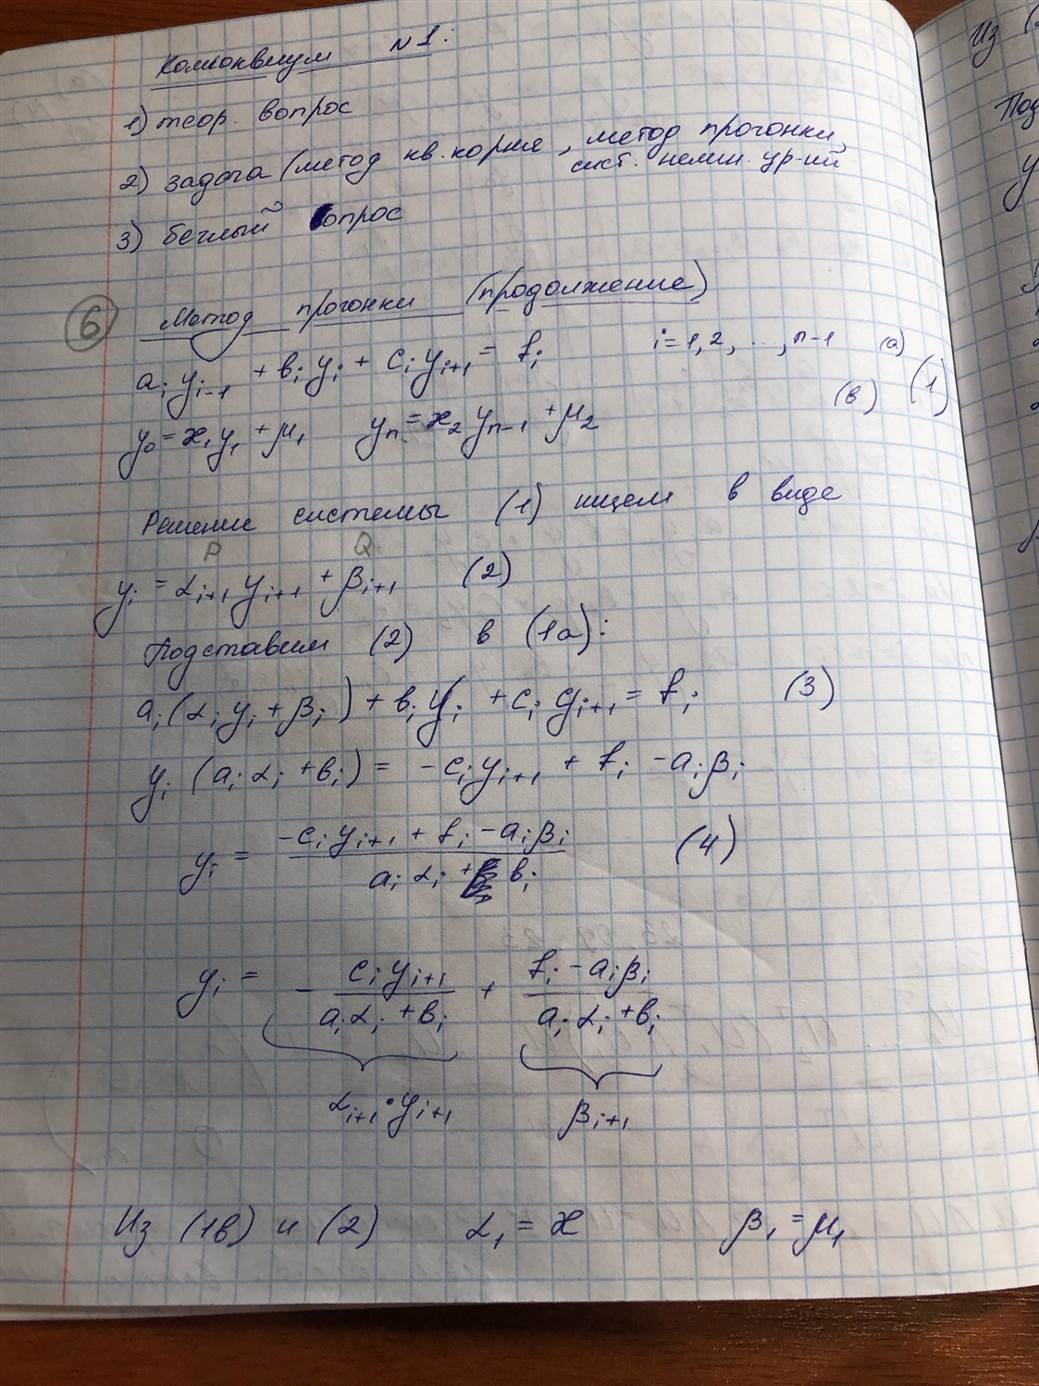 Коллоквиум №1:
1) теор. вопрос
2) задача (метод кв. корня, метод прогонки,
сист. нелин. ур-ий
3) беглый вопрос
6 Метод прогонки (продолжение)
a_i y_{i-1} + b_i y_i + c_i y_{i+1} = f_i   i = 1, 2, ..., n-1   (a)
y_0 = ϰ_1 y_1 + μ_1   y_n = ϰ_2 y_{n-1} + μ_2   (в)   (1)
Решение системы (1) ищем в виде
P   Q
y_i = α_{i+1} y_{i+1} + β_{i+1}   (2)
Подставим (2) в (1а):
a_i (α_i y_i + β_i) + b_i y_i + c_i y_{i+1} = f_i   (3)
y_i (a_i α_i + b_i) = -c_i y_{i+1} + f_i - a_i β_i
y_i = (-c_i y_{i+1} + f_i - a_i β_i) / (a_i α_i + b_i)   (4)
y_i = - (c_i y_{i+1}) / (a_i α_i + b_i) + (f_i - a_i β_i) / (a_i α_i + b_i)
α_{i+1} · y_{i+1}   β_{i+1}
Из (1в) и (2)   α_1 = ϰ   β_1 = μ_1
Из (
Под
y